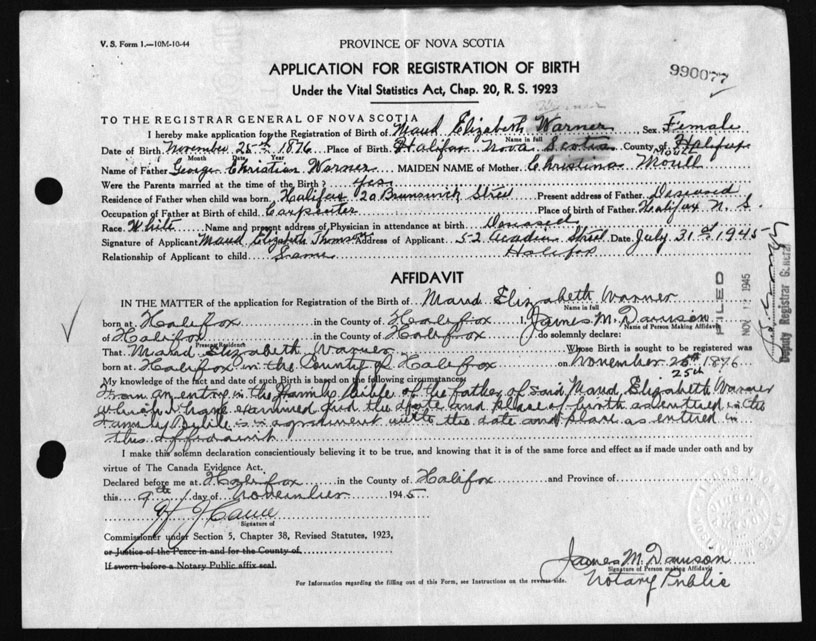 V. S. Form 1.—10M-10-44
PROVINCE OF NOVA SCOTIA
990077
APPLICATION FOR REGISTRATION OF BIRTH
Under the Vital Statistics Act, Chap. 20, R. S. 1923
TO THE REGISTRAR GENERAL OF NOVA SCOTIA
I hereby make application for the Registration of Birth of Maud Elizabeth Warner, Sex Female
Name in full
Date of Birth November 25th 1876 Place of Birth Halifax Nova Scotia County of Halifax
Month Date Year
Name of Father George Christian Warner MAIDEN NAME of Mother Christina Moull
Were the Parents married at the time of the Birth? yes
Residence of Father when child was born, Halifax 20 Brunswick Street Present address of Father Deseased
Occupation of Father at Birth of child Carpenter Place of birth of Father Halifax N. S.
Race White Name and present address of Physician in attendance at birth Deseased
Signature of Applicant Maud Elizabeth Thomson Address of Applicant 52 Acadia Street Date July 31st 1945
Relationship of Applicant to child Same Halifax
AFFIDAVIT
IN THE MATTER of the application for Registration of the Birth of Maud Elizabeth Warner
Name in full
born at Halifax in the County of Halifax I, James M. Davison
Name of Person Making Affidavit
of Halifax in the County of Halifax do solemnly declare:
Present Residence
That Maud Elizabeth Warner Whose Birth is sought to be registered was
born at Halifax in the County of Halifax on November 25th 1876
25th
My knowledge of the fact and date of such Birth is based on the following circumstances:
from an entry in the Family Bible of the father of said Maud Elizabeth Warner
which I have examined and the date and place of birth as entered in the
Family Bible is in agreement with the date and place as entered in
this affidavit
I make this solemn declaration conscientiously believing it to be true, and knowing that it is of the same force and effect as if made under oath and by
virtue of The Canada Evidence Act.
Declared before me at Halifax in the County of Halifax and Province of
this 9th day of November 1945
Signature of
Commissioner under Section 5, Chapter 38, Revised Statutes, 1923,
or Justice of the Peace in and for the County of
If sworn before a Notary Public affix seal.
James M. Davison
Signature of Person making Affidavit
Notary Public
For Information regarding the filling out of this Form, see Instructions on the reverse side.
FILED
NOV 1945
Deputy Registrar General